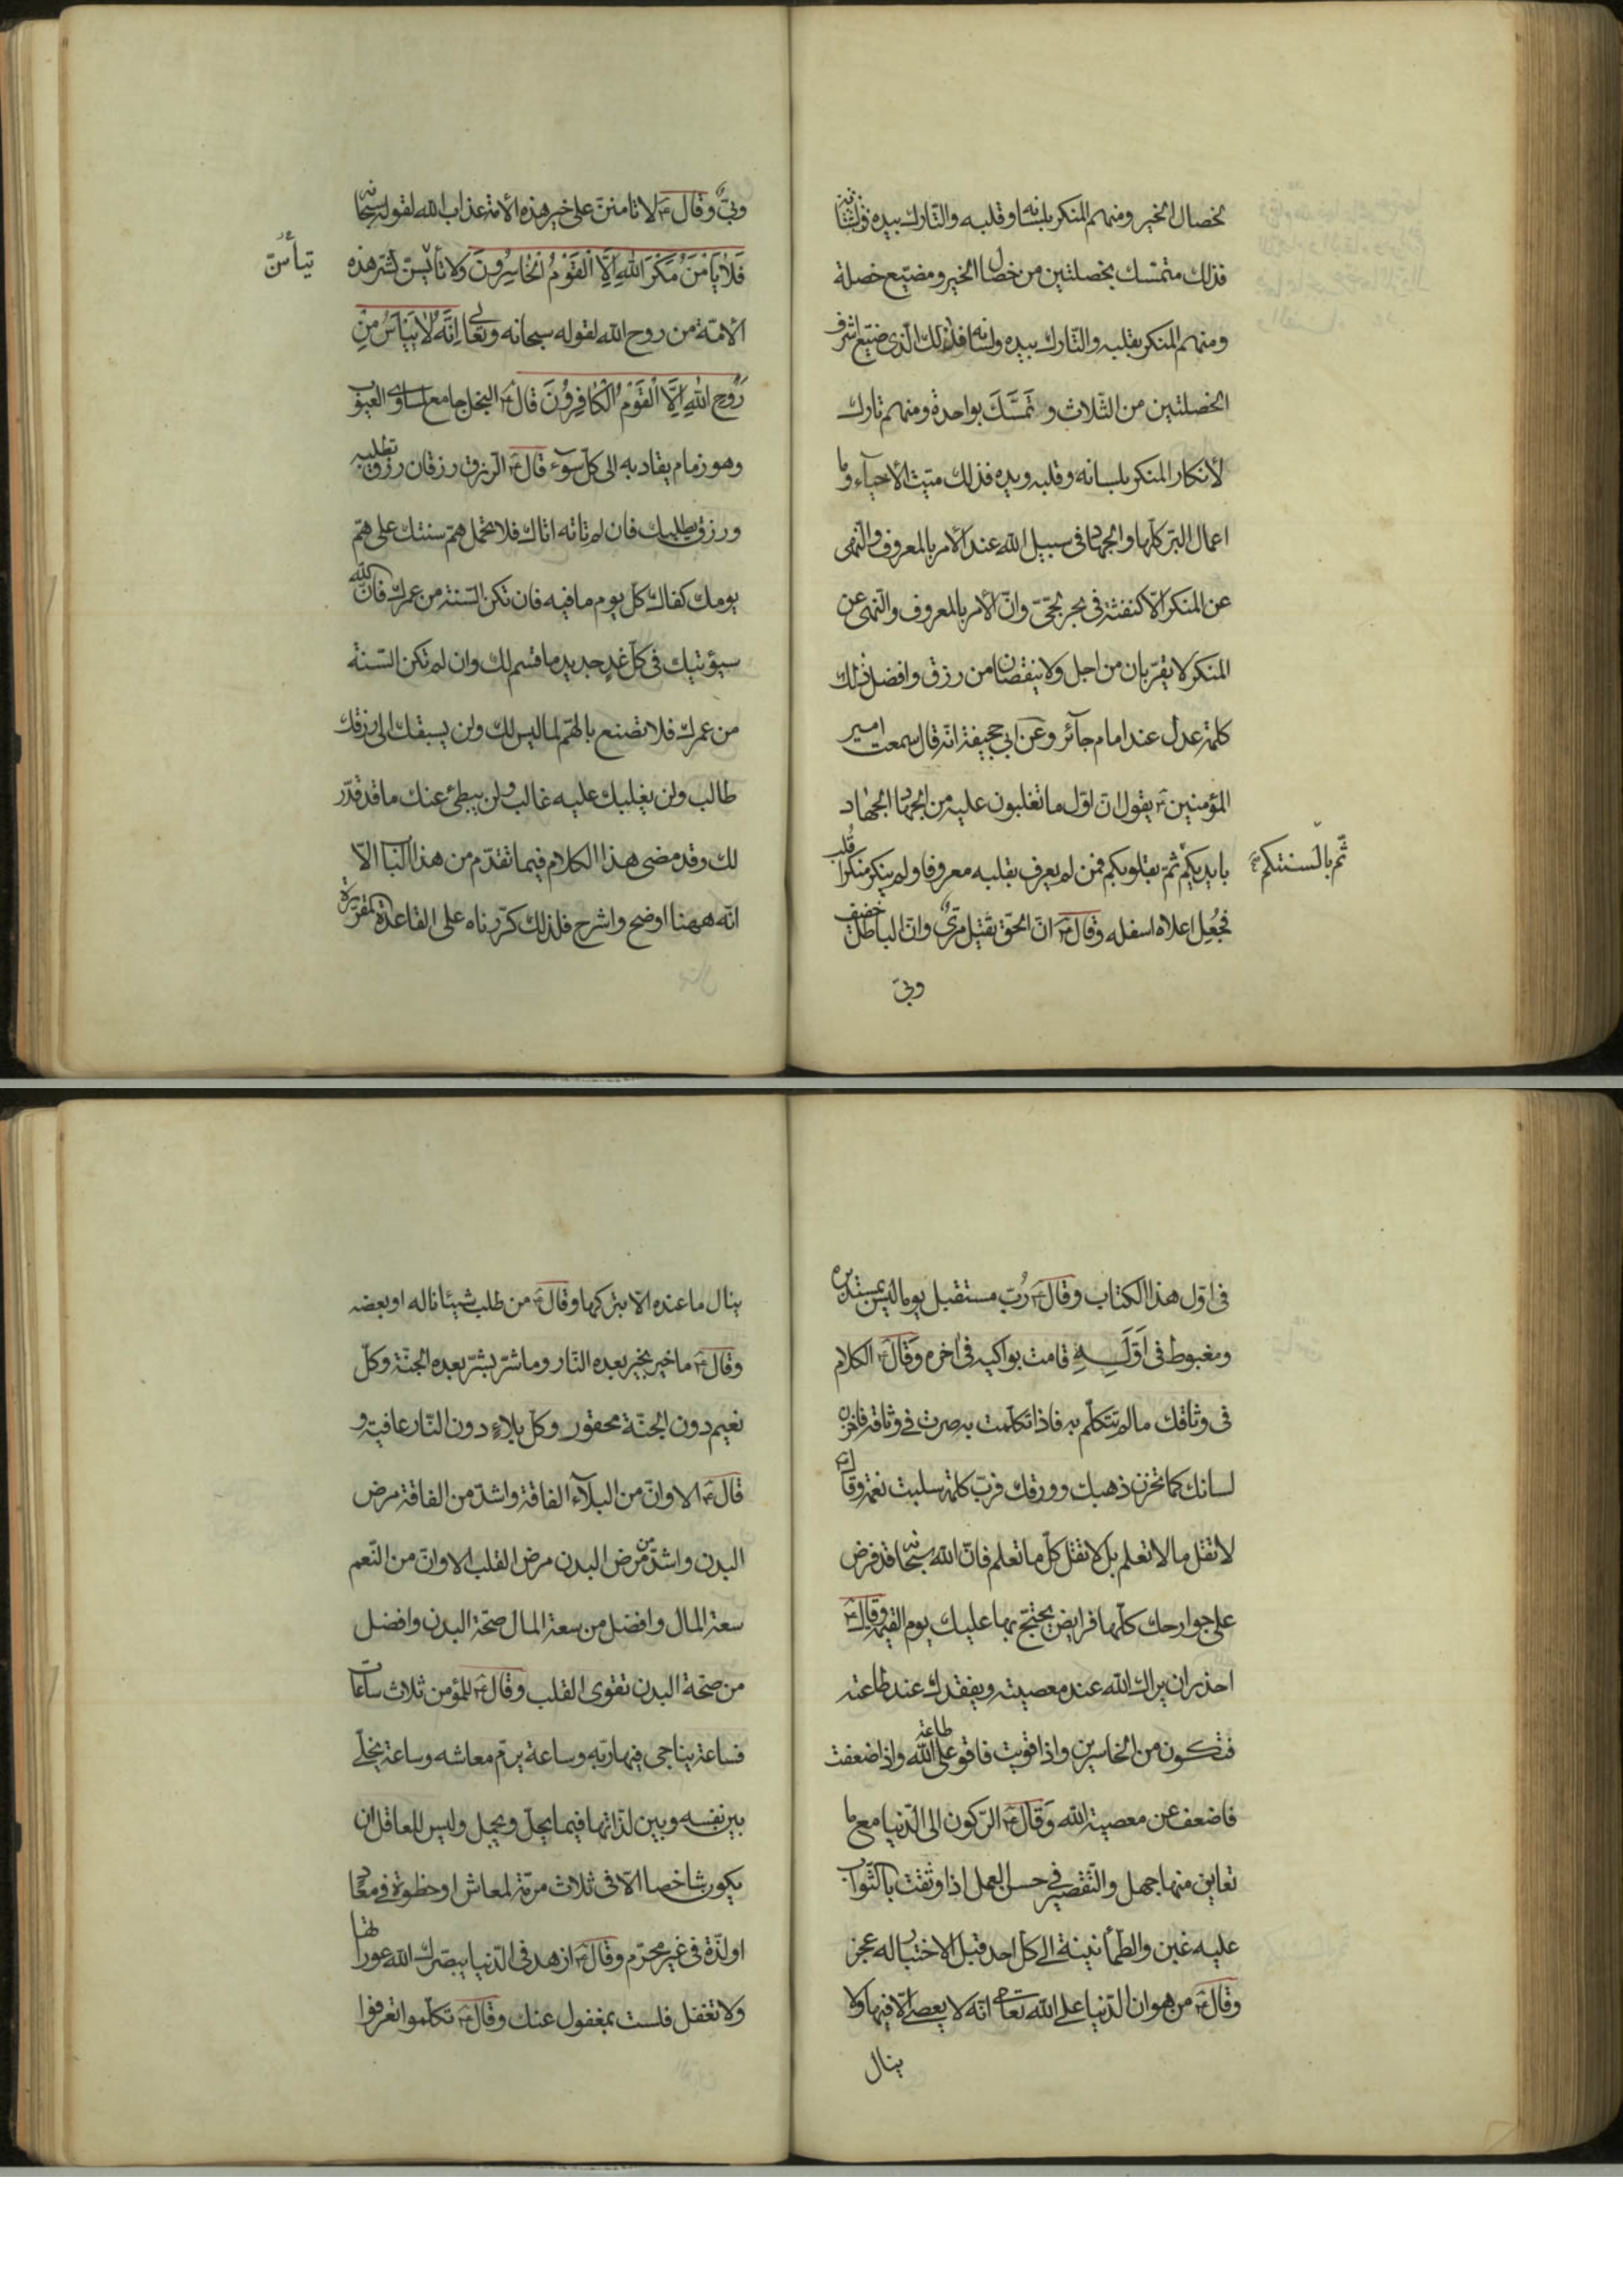 لخصال الخير ومنهم المنكر بلسانه وقلبه والتارك بيده
فذلك متمسّك بخصلتين من خصال الخير ومضيّع خصلة
ومنهم المنكر بقلبه والتّارك بيده ولسانه فذلك الذى ضيّع اشرف
الخصلتين من الثّلاث وتَمَسَّكَ بواحدة ومنهم تارك
لأنكار المنكر بلسانه وقلبه ويده فذلك ميّت الأحياء وما
اعمال البرّ كلّها والجهاد فى سبيل الله عند الأمر بالمعروف والنّهى
عن المنكر الّا كنفثة فى بحر لجّىّ وانّ الأمر بالمعروف والنّهى عن
المنكر لا يقرّبان من اجل ولا ينقصان من رزق وافضل ذلك
كلمة عدل عند امام جآئر وعن ابى جحيفة انّه قال سمعت امير
المؤمنين ع يقول انّ اوّل ما تغلبون عليه من الجهاد الجهاد
بايديكم ثمّ بقلوبكم فمن لم يعرف بقلبه معروفا ولم ينكر منكرا قُلِب
ثمّ بألسنتكم
فجُعِل اعلاه اسفله وقال ع انّ الحقّ ثقيل مرىّ وانّ الباطل خفيف
وبىّ
وبىّ وقال ع لا تامننّ على خير هذه الأمة عذاب الله لقوله سبحانه
فَلَا يَأمَنُ مَكْرَ اللهِ اِلَّا الْقَوْمُ الْخَاسِرُونَ ولا تأيسنّ لشرّ هذه
تيأسنّ
الأمّة من روح الله لقوله سبحانه وتعالى اِنَّهُ لَا يَيْأَسُ مِنْ
رَوْحِ اللهِ اِلَّا الْقَوْمُ الْكَافِرُونَ قال ع البخل جامع لمساوى العيوب
وهو زمام يقاد به الى كلّ سوء قال ع الرّزق رزقان رزق تطلبه
ورزق يطلبك فان لم تاته اتاك فلا تحمل همّ سنتك على همّ
يومك كفاك كلّ يوم ما فيه فان تكن السّنة من عمرك فانّ الله
سيؤتيك فى كلّ غدٍ جديد ما قسم لك وان لم تكن السّنة
من عمرك فلا تصنع بالهمّ لما ليس لك ولن يسبقك الى رزقك
طالب ولن يغلبك عليه غالب ولن يبطئ عنك ما قد قدّر
لك وقد مضى هذا الكلام فيما تقدّم من هذا الكتاب الّا
انّه ههنا اوضح واشرح فلذلك كرّرناه على القاعدة المقرّرة
فى اوّل هذا الكتاب وقال ع رُبّ مستقبل يوما ليس بمستدبره
ومغبوط فى اَوَّلِهِ قامت بواكيه فى اخره وقال ع الكلام
فى وثاقك ما لم تتكلّم به فاذا تكلّمت به صرت فى وثاقه فاخزن
لسانك كما تخزن ذهبك وورقك فربّ كلمة سلبت نعمة وقال ع
لا تقل ما لا تعلم بل لا تقل كلّ ما تعلم فانّ الله سبحانه قد فرض
على جوارحك كلّها فرايض يحتجّ بها عليك يوم القيمة وقال ع
احذر ان يراك الله عند معصيته ويفقدك عند طاعته
فتكون من الخاسرين واذا قويت فاقو على طاعة الله واذا ضعفت
فاضعف عن معصية الله وقال ع الرّكون الى الدّنيا مع ما
تعاين منها جهل والتّقصير فى حسن العمل اذا وثقت بالثّواب
عليه غبن والطمأنينة الى كلّ احد قبل الاختبار له عجز
وقال ع من هوان الدّنيا على الله تعالى انّه لا يعصى الّا فيها ولا
ينال
ينال ما عنده الّا بتركها وقال ع من طلب شيئا ناله او بعضه
وقال ع ما خير بخير بعده النّار وما شرّ بشرّ بعده الجنّة وكلّ
نعيم دون الجنّة محقور وكلّ بلاءٍ دون النّار عافية و
قال ع الا وانّ من البلآء الفاقة واشدّ من الفاقة مرض
البدن واشدّ من مرض البدن مرض القلب الا وانّ من النّعم
سعة المال وافضل من سعة المال صحّة البدن وافضل
من صحّة البدن تقوى القلب وقال ع للمؤمن ثلاث ساعات
فساعة يناجى فيها ربّه وساعة يرمّ معاشه وساعة يخلّى
بين نفسه وبين لذّاتها فيما يحلّ ويجمل وليس للعاقل ان
يكون شاخصا الّا فى ثلاث مرمّة لمعاش او حظوة فى معاد
او لذّة فى غير محرّم وقال ع ازهد فى الدّنيا يبصّرك الله عوراتها
ولا تغفل فلست بمغفول عنك وقال ع تكلّموا تعرفوا